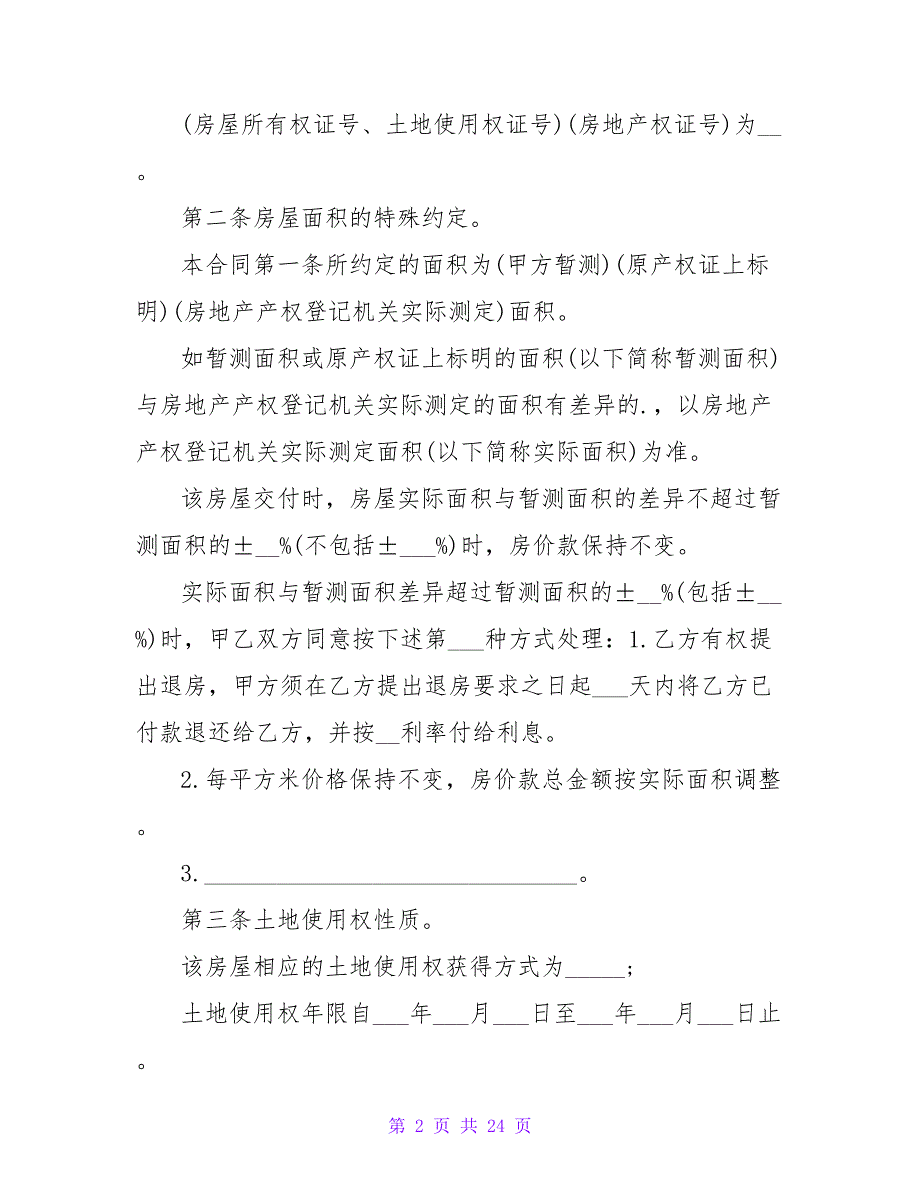 (房屋所有权证号、土地使用权证号)(房地产权证号)为__
。
第二条房屋面积的特殊约定。
本合同第一条所约定的面积为(甲方暂测)(原产权证上标
明)(房地产产权登记机关实际测定)面积。
如暂测面积或原产权证上标明的面积(以下简称暂测面积)
与房地产产权登记机关实际测定的面积有差异的.，以房地产
产权登记机关实际测定面积(以下简称实际面积)为准。
该房屋交付时，房屋实际面积与暂测面积的差异不超过暂
测面积的±__%(不包括±___%)时，房价款保持不变。
实际面积与暂测面积差异超过暂测面积的±__%(包括±__
%)时，甲乙双方同意按下述第___种方式处理：1.乙方有权提
出退房，甲方须在乙方提出退房要求之日起___天内将乙方已
付款退还给乙方，并按__利率付给利息。
2.每平方米价格保持不变，房价款总金额按实际面积调整
。
3.________________________________。
第三条土地使用权性质。
该房屋相应的土地使用权获得方式为_____;
土地使用权年限自___年___月___日至___年___月___日止
。
第 2 页 共 24 页